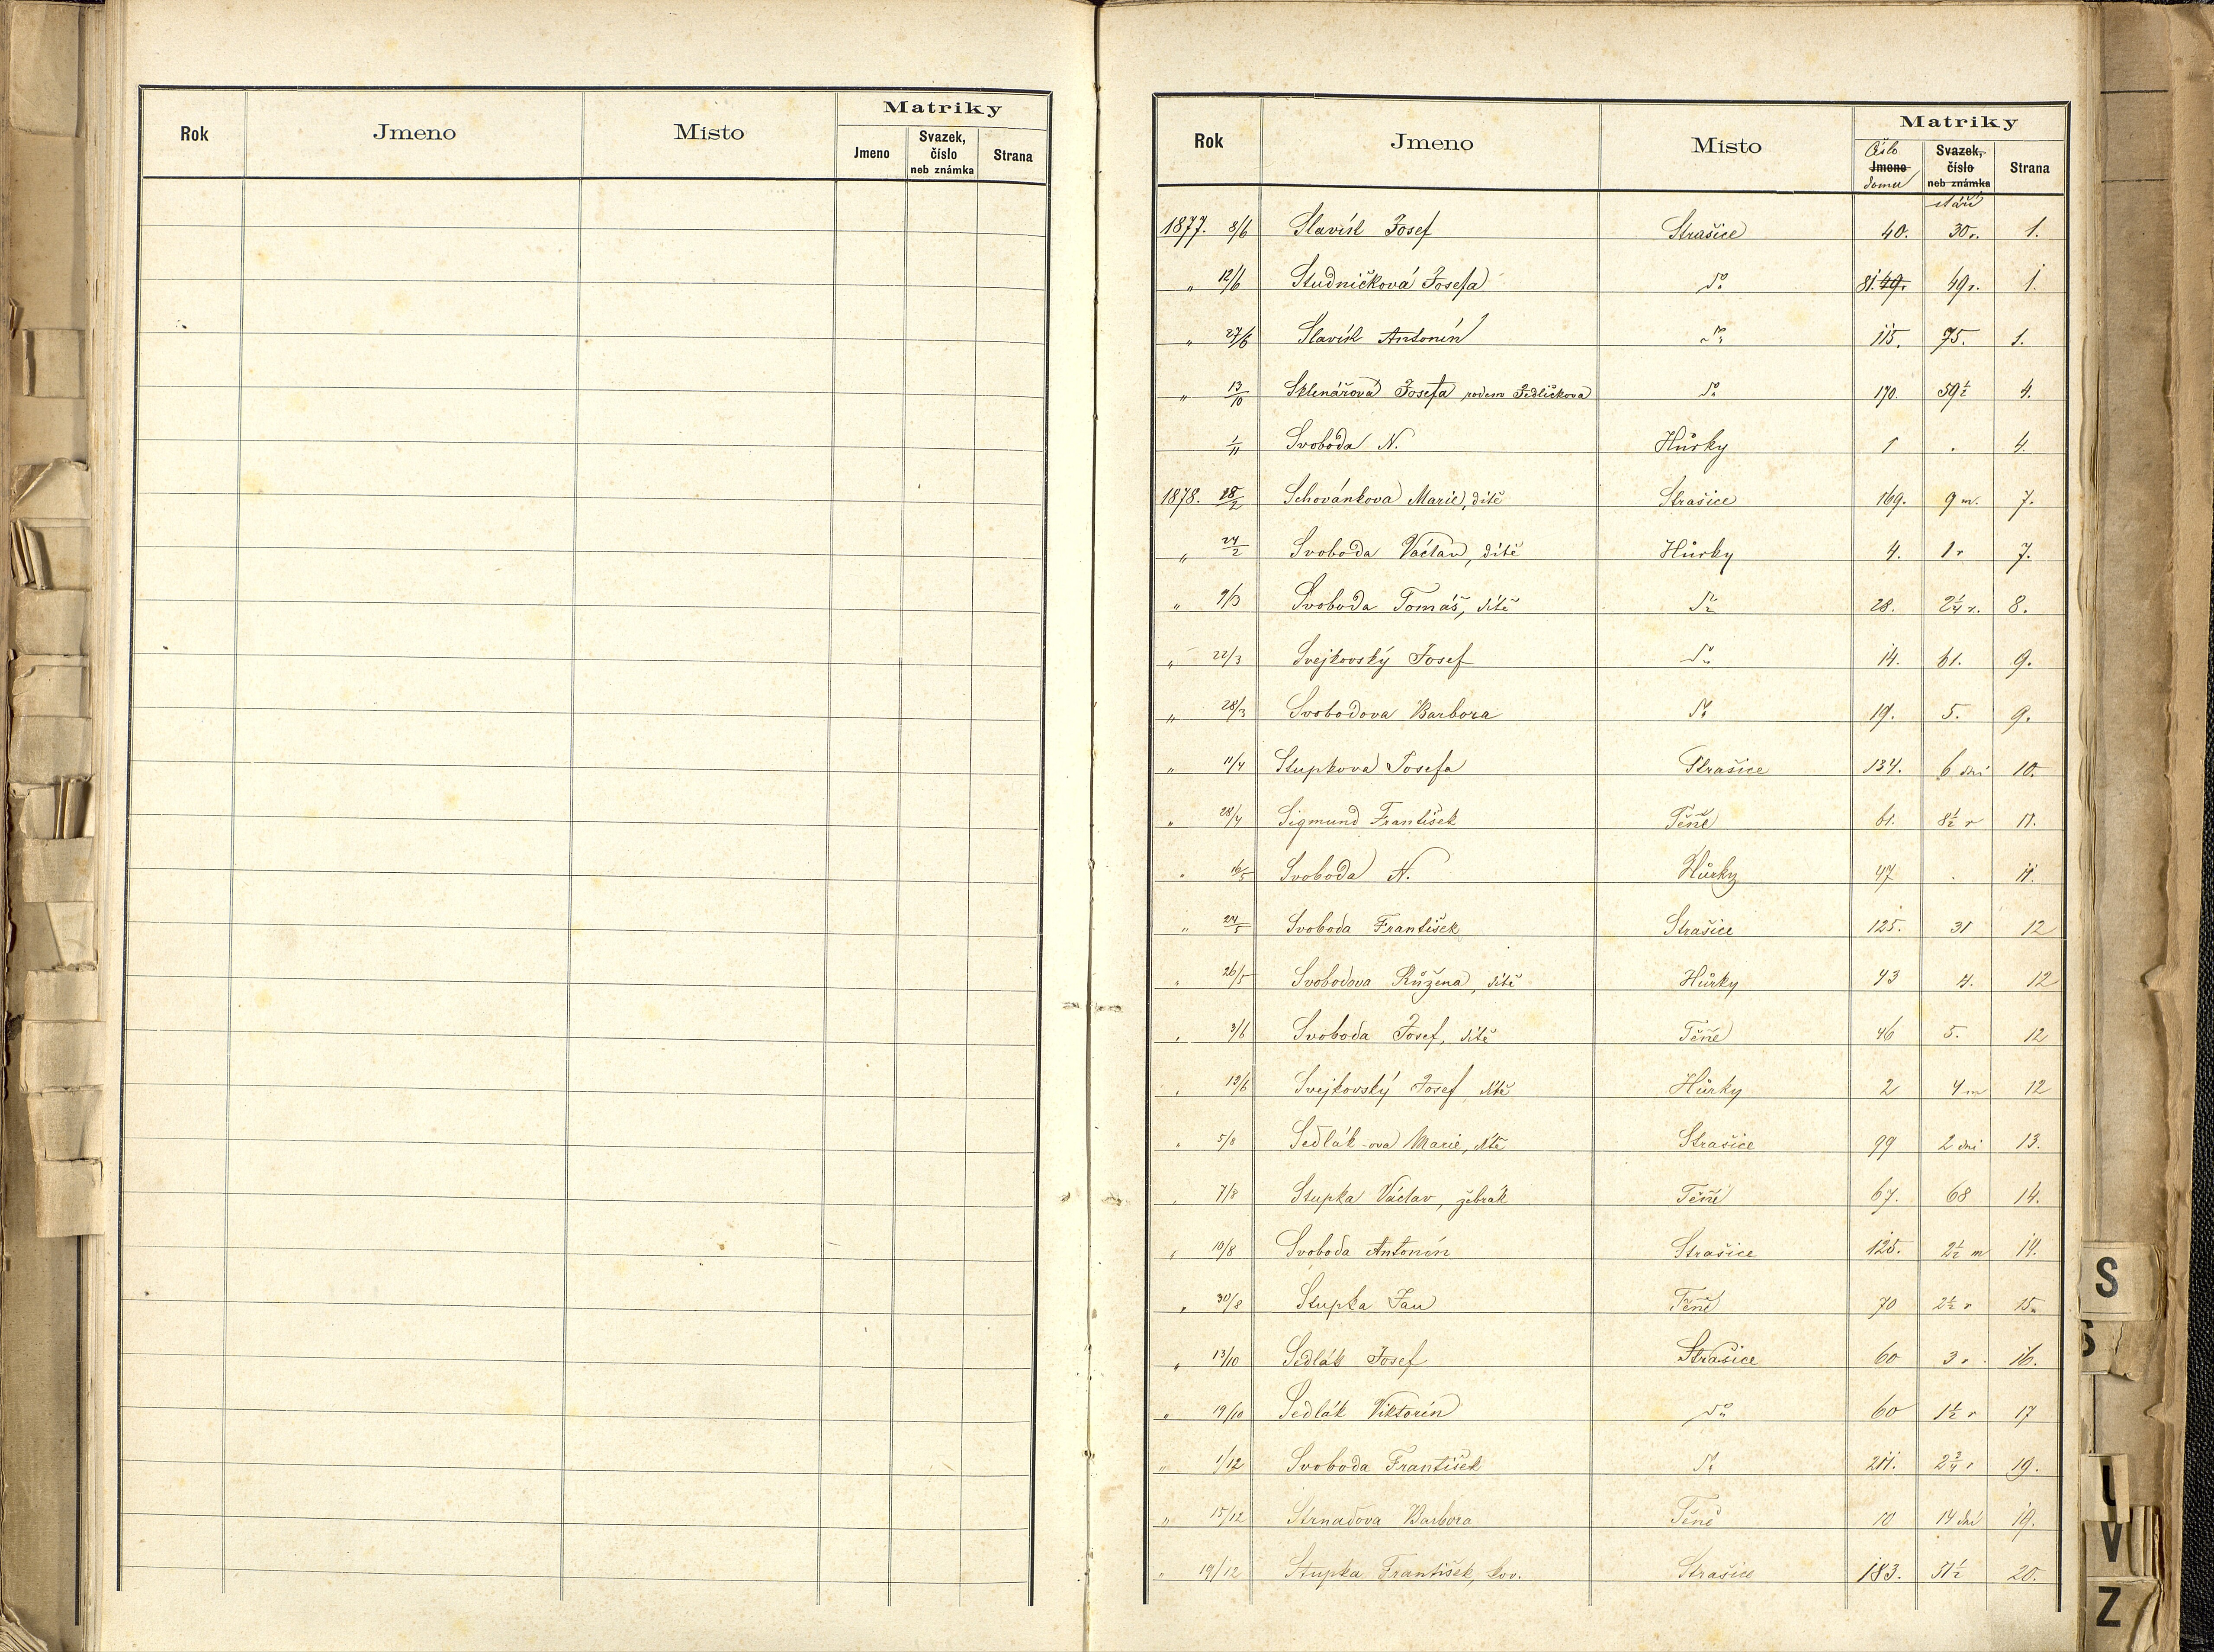 Matriky
Rok Jmeno Místo Jmeno Svazek, číslo neb známka Strana
Matriky
Rok Jmeno Místo Číslo Jmeno domu Svazek, číslo neb známka stáří Strana
1877. 8/6 Slavík Josef Strašice 40. 30 r. 1.
„ 12/6 Studničková Josefa do 81. 49. 49 r. 1.
„ 27/6 Slavík Antonín do 115. 75. 1.
„ 13/10 Sklenářová Josefa rodem Jedličkova do 170. 59½ 4.
1/11 Svoboda N. Hůrky 1 . 4.
1878. 28/2 Schovánkova Marie, dítě Strašice 169. 9 m. 7.
„ 24/2 Svoboda Václav, dítě Hůrky 4. 1 r 7.
„ 9/3 Svoboda Tomáš, dítě do 28. 2¼ r. 8.
„ 22/3 Svejkovský Josef do 14. 61. 9.
„ 28/3 Svobodova Barbora do 19. 5. 9.
„ 11/4 Stupkova Josefa Strašice 134. 6 dní 10.
„ 28/4 Sigmund František Těně 61. 8½ r 11.
„ 16/5 Svoboda N. Hůrky 47 . 11.
„ 24/5 Svoboda František Strašice 125. 31 12
„ 26/5 Svobodova Růžena, dítě Hůrky 43 12
„ 3/6 Svoboda Josef, dítě Těně 46 5. 12
„ 19/6 Svejkovský Josef dítě Hůrky 2 4 m 12
„ 5/8 Sedlák-ova Marie, dítě Strašice 99 2 dni 13.
„ 7/8 Stupka Václav, žebrák Těně 67. 68 14.
„ 10/8 Svoboda Antonín Strašice 125. 2½ m 14.
„ 30/8 Stupka Jan Těně 70 2½ r 15.
„ 13/10 Sedlák Josef Strašice 60 3 r. 16.
„ 19/10 Sedlák Viktorin do 60 1½ r 17
„ 1/12 Svoboda František do 211. 2¾ r 19.
„ 15/12 Strnadova Barbora Těně 10 14 dní 19.
„ 19/12 Stupka František, kov. Strašice 183. 51½ 20.
S
S
U
V
Z